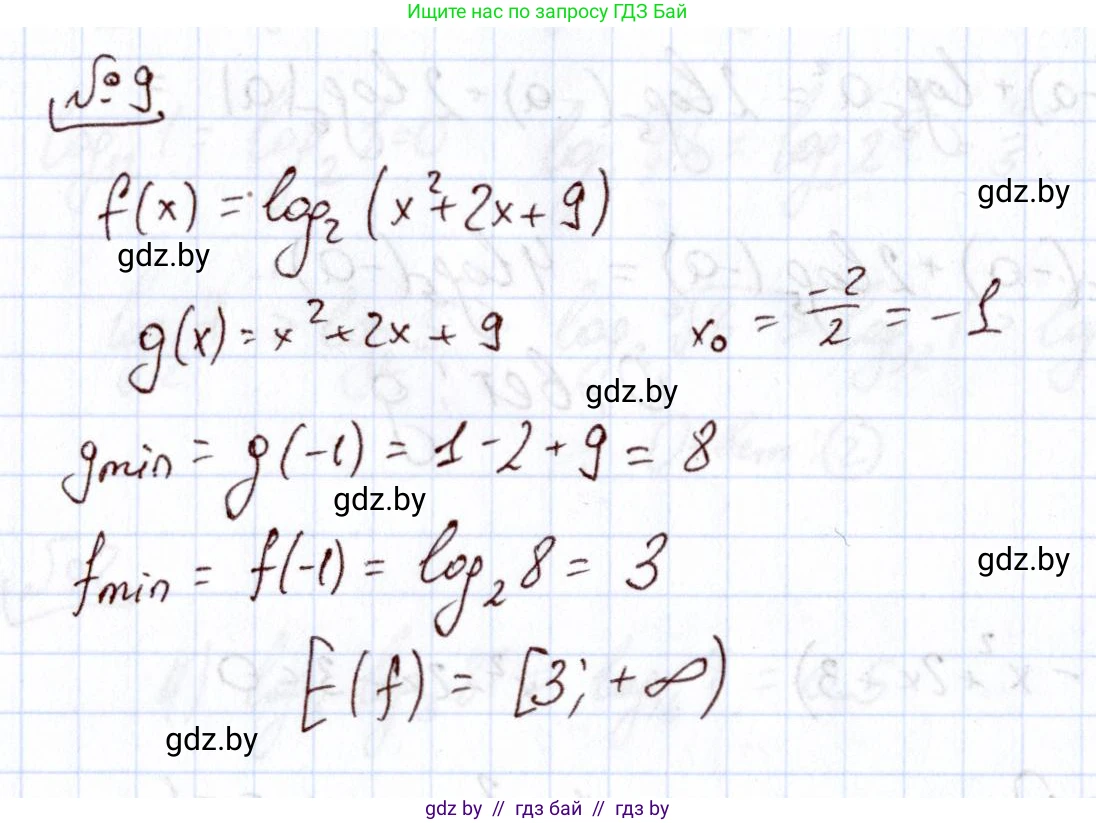 Ищите нас по запросу ГДЗ Бай
№9
f(x) = log₂(x²+2x+9)
gdz.by
gdz.by
g(x) = x²+2x+9 x₀ = -2/2 = -1
gdz.by
gmin = g(-1) = 1-2+9 = 8
gdz.by
fmin = f(-1) = log₂8 = 3
gdz.by
E(f) = [3; +∞)
gdz.by
gdz by // гдз бай // гдз by